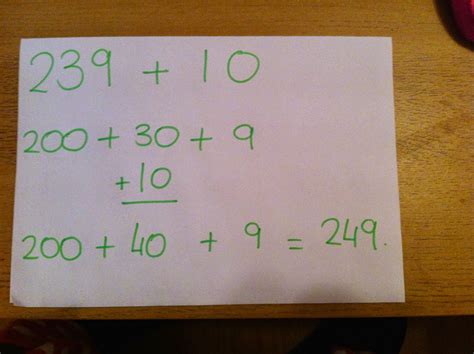 239 + 10
200 + 30 + 9
+10
200 + 40 + 9 = 249.